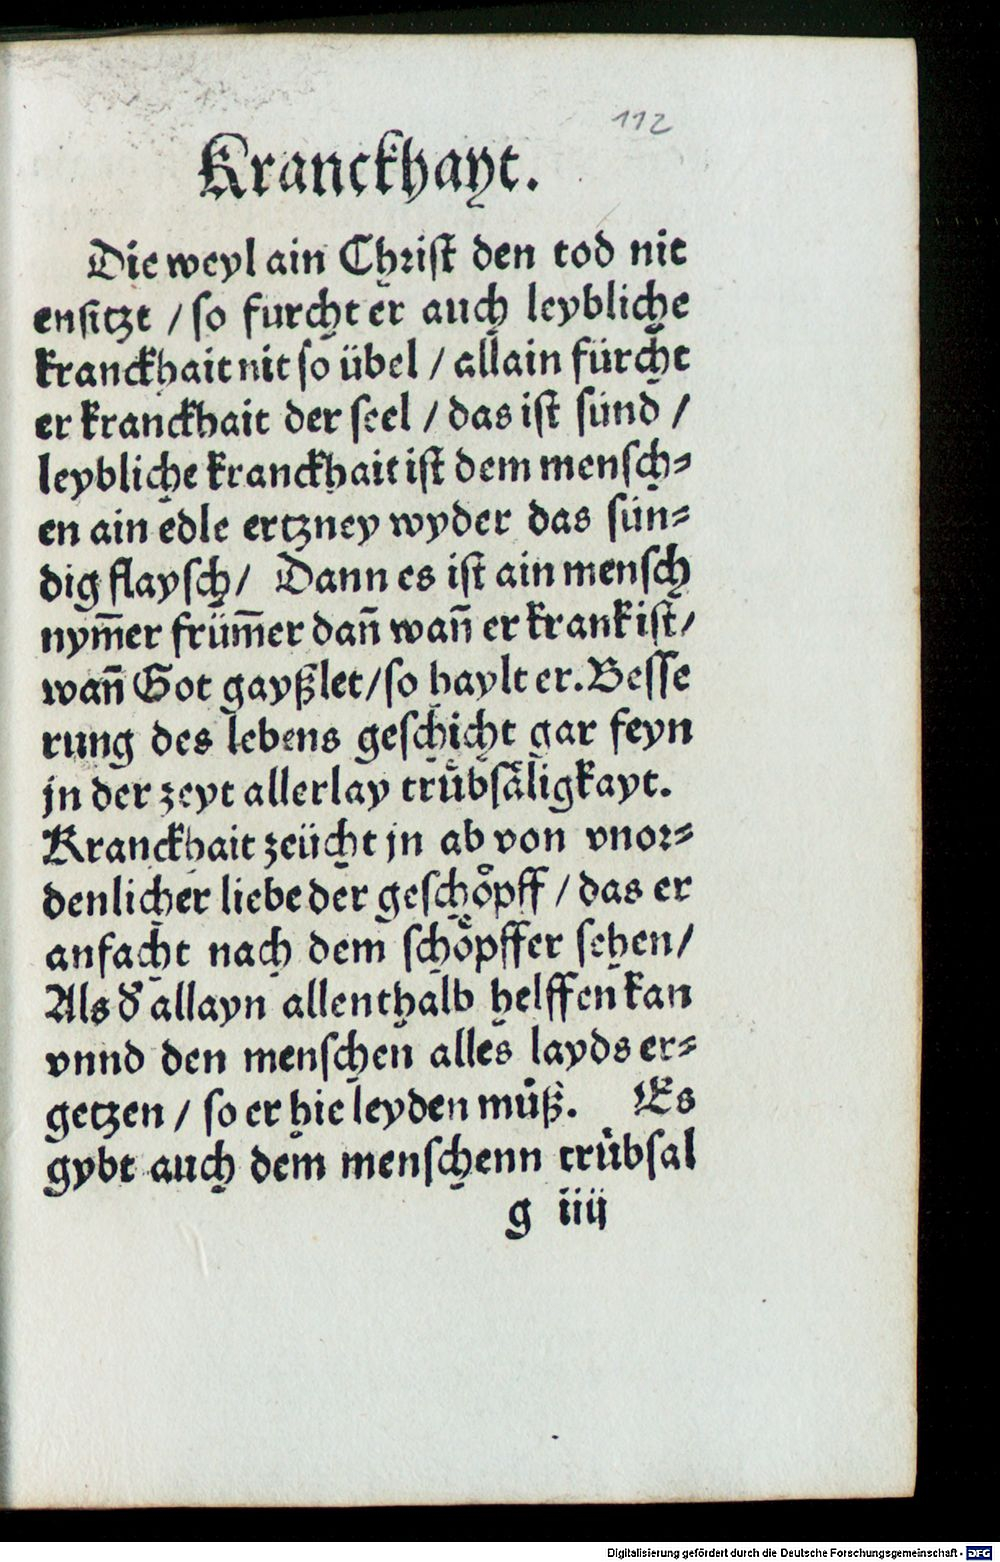 112
Kranckhayt.
Die weyl ain Chriſt den tod nit
enſitzt / ſo furcht er auch leybliche
kranckhait nit ſo übel / allain fürcht
er kranckhait der ſeel / das iſt ſünd /
leybliche kranckhait iſt dem menſch⸗
en ain edle ertzney wyder das ſün⸗
dig flayſch / Dann es iſt ain menſch
nym̄er früm̄er dañ wañ er krank iſt /
wañ Got gayßlet / ſo haylt er. Beſſe
rung des lebens geſchicht gar feyn
jn der zeyt allerlay truͤbſaͤligkayt.
Kranckhait zeücht jn ab von vnor⸗
denlicher liebe der geſchoͤpff / das er
anfacht nach dem ſchoͤpffer ſehen /
Als d' allayn allenthalb helffen kan
vnnd den menſchen alles layds er⸗
getzen / ſo er hie leyden muͦß. Es
gybt auch dem menſchenn truͤbſal
g iiij
Digitalisierung gefördert durch die Deutsche Forschungsgemeinschaft - DFG